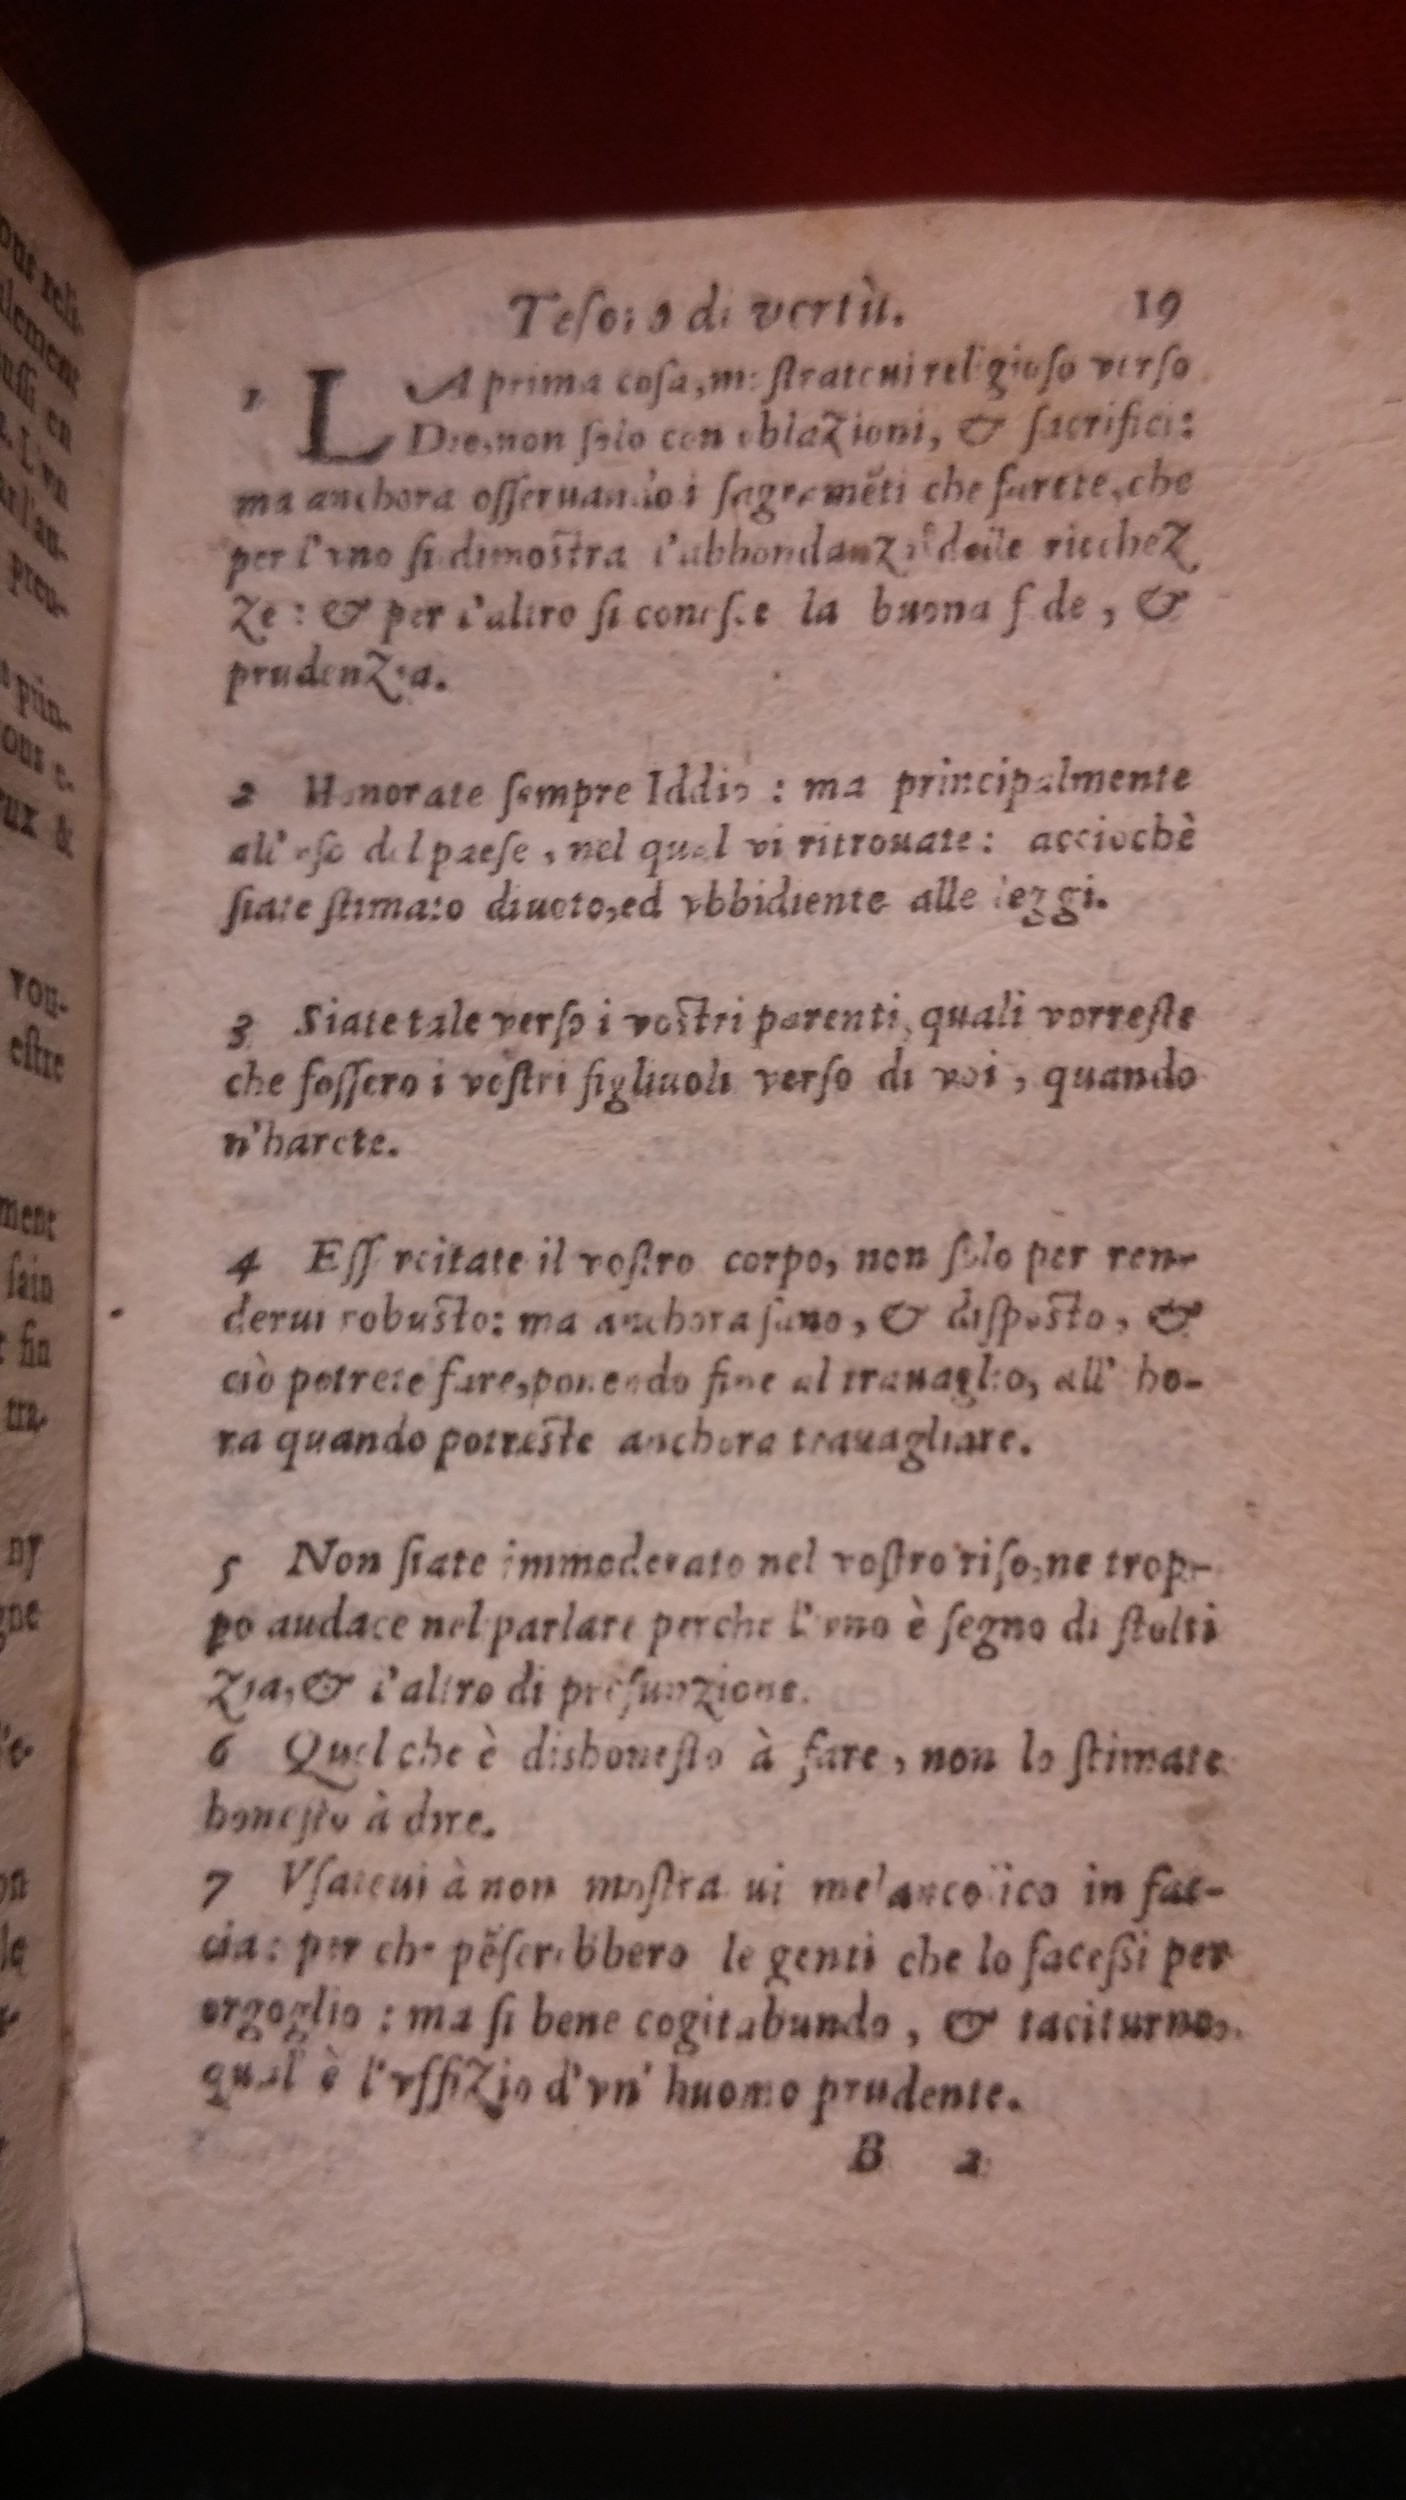 Teſoro di vertù. 19
1 LA prima coſa, moſtrateui religioſo verſo
Dio, non ſolo con oblazioni, & ſacrifici:
ma anchora oſſeruando i ſagramẽti che farete, che
per l'vno ſi dimoſtra l'abbondanza delle ricchez
ze: & per l'altro ſi conoſce la buona fede, &
prudenzia.
2 Honorate ſempre Iddio: ma principalmente
all'vſo del paeſe, nel qual vi ritrouate: acciochè
ſiate ſtimato diuoto, ed vbbidiente alle leggi.
3 Siate tale verſo i voſtri parenti, quali vorreſte
che foſſero i voſtri figliuoli verſo di voi, quando
n'harete.
4 Eſſercitate il voſtro corpo, non ſolo per ren-
derui robuſto: ma anchora ſano, & diſpoſto, &
ciò potrete fare, ponendo fine al trauaglio, all' ho-
ra quando potreſte anchora trauagliare.
5 Non ſiate immoderato nel voſtro riſo, ne trop-
po audace nel parlare perche l'vno è ſegno di ſtolti
zia, & l'altro di preſunzione.
6 Quel che è dishoneſto à fare, non lo ſtimate
honeſto à dire.
7 Vſateui à non moſtra ui melancolico in fac-
cia: per che pẽſerebbero le genti che lo faceſsi per
orgoglio: ma ſi bene cogitabundo, & taciturno,
qual' è l'vffizio d'vn' huomo prudente.
B 2
ous reli-
element
uſſi en
L'vn
l'au-
preu-
prin-
ous e-
&
vou-
eſtre
ment
ſain
fin
tra-
ny